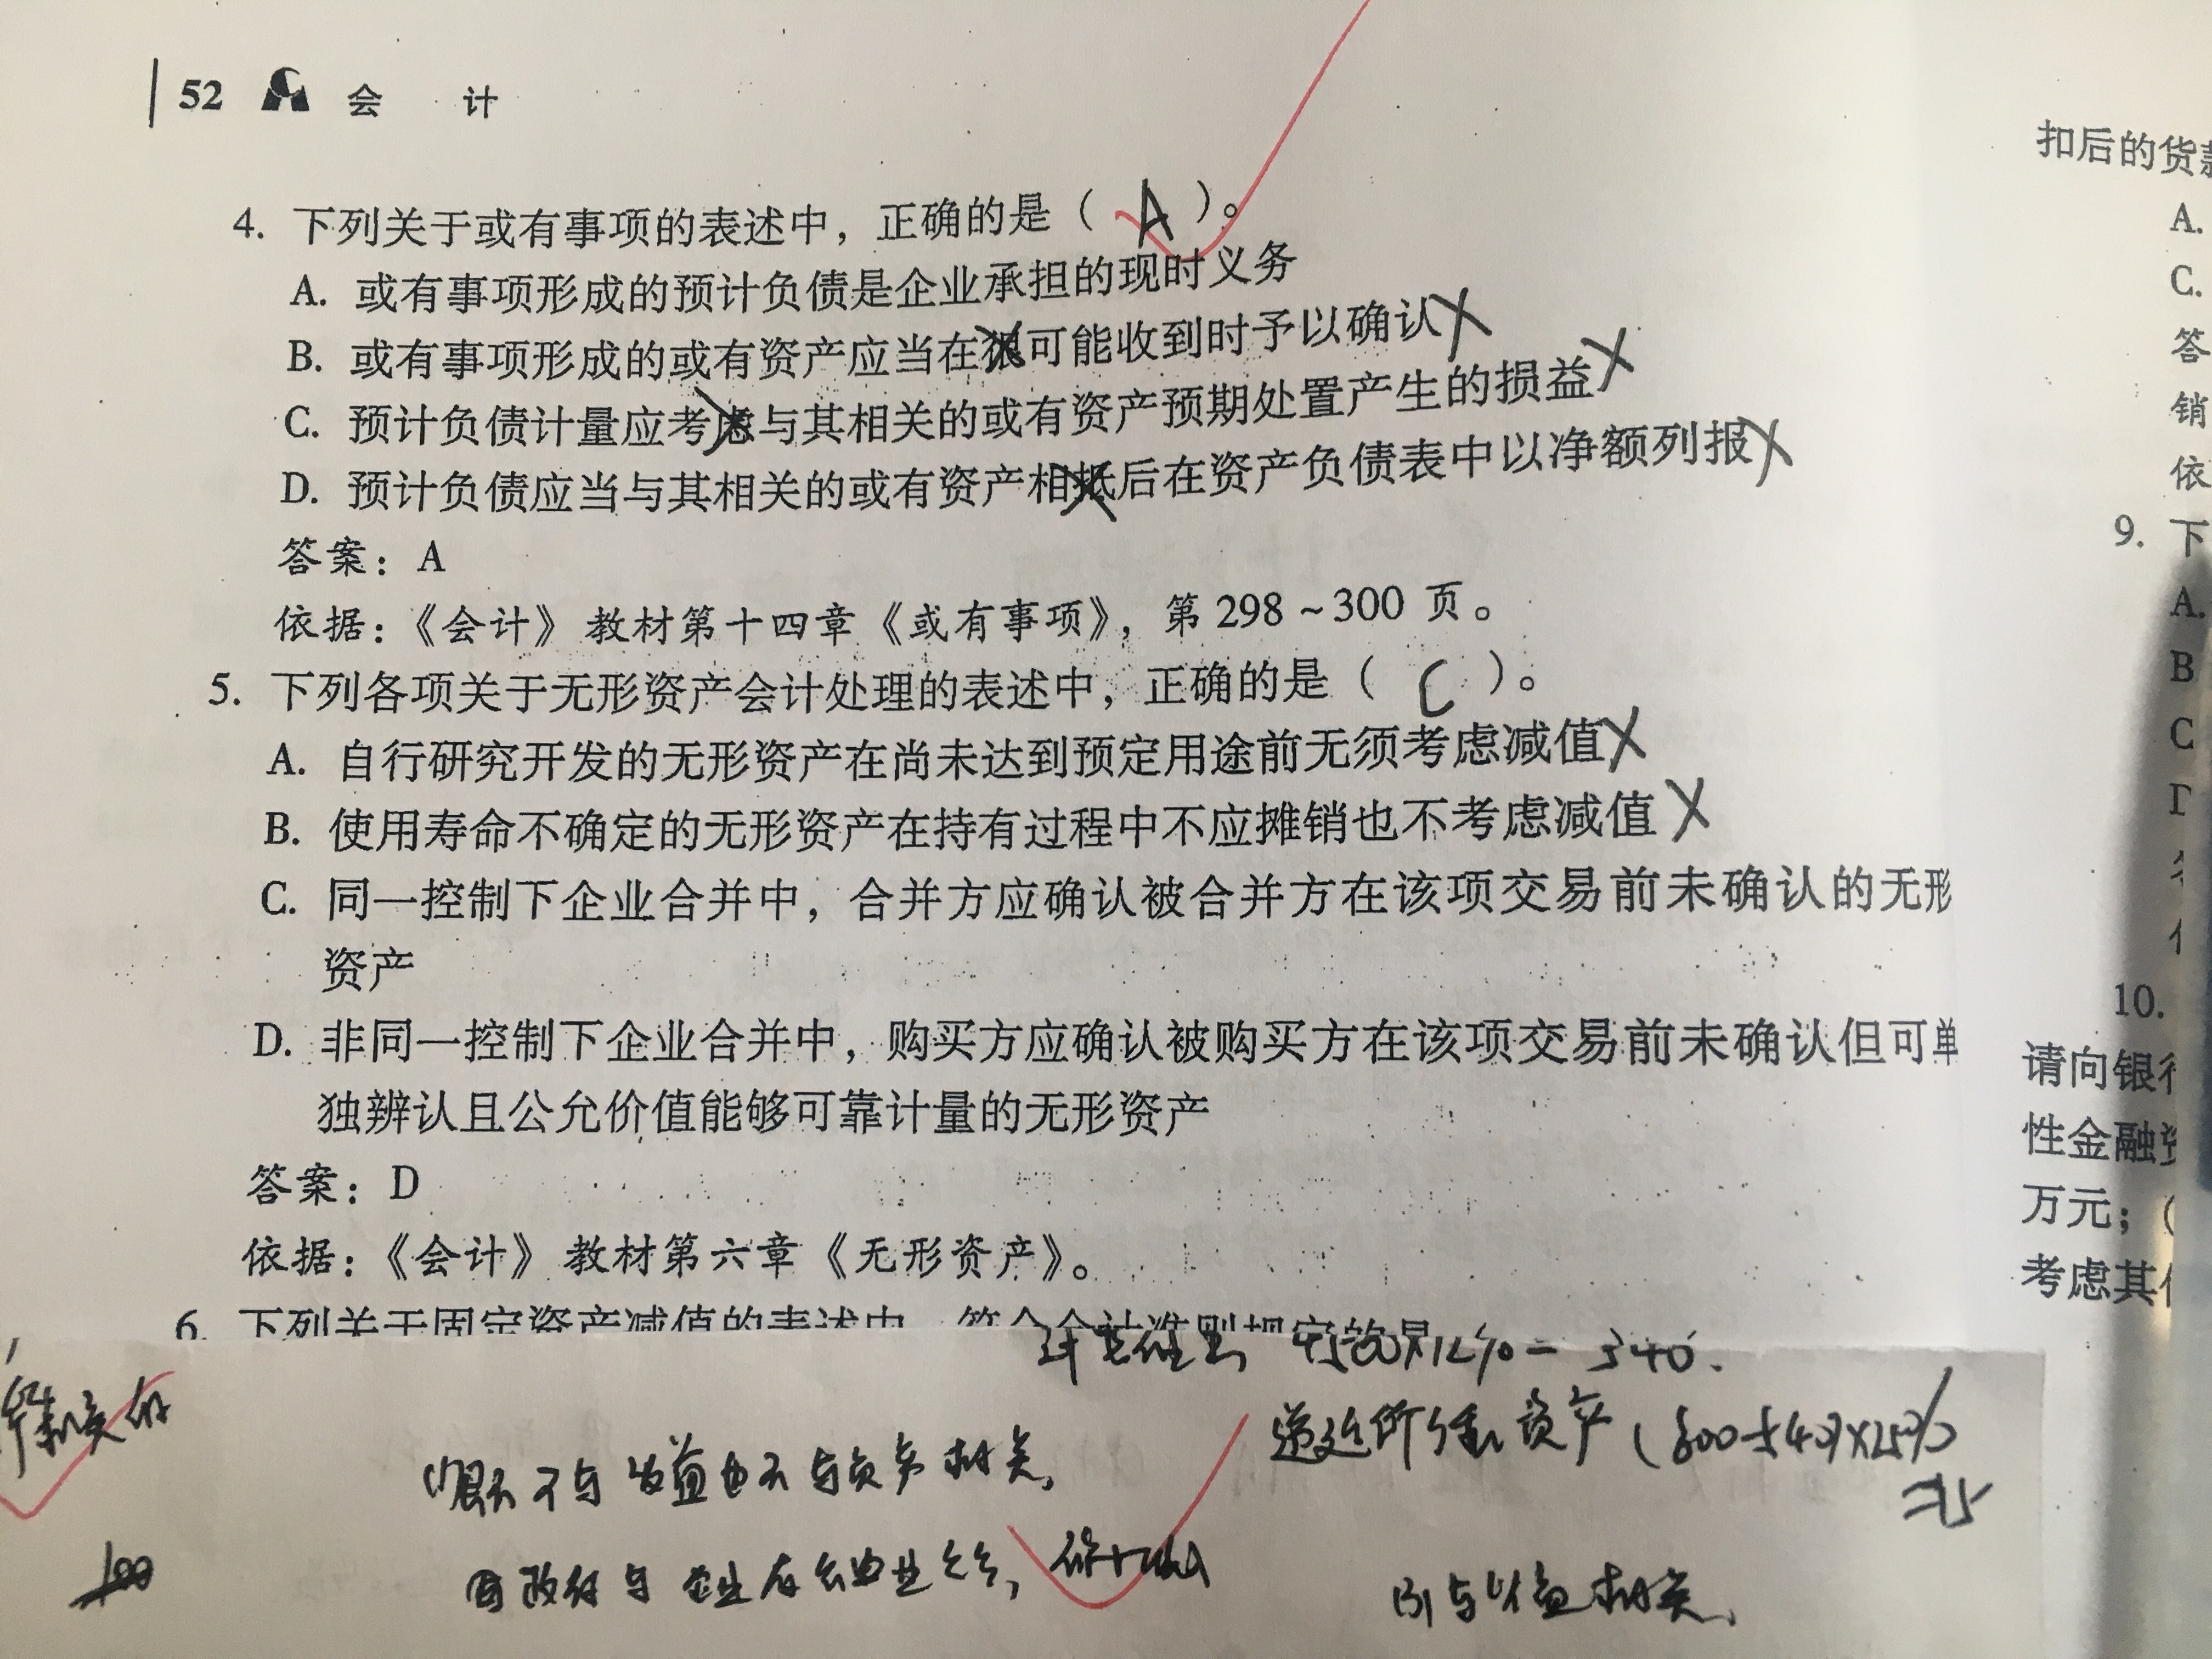 52 会 计
4. 下列关于或有事项的表述中，正确的是（ A ）。
A. 或有事项形成的预计负债是企业承担的现时义务
B. 或有事项形成的或有资产应当在很可能收到时予以确认
C. 预计负债计量应考虑与其相关的或有资产预期处置产生的损益
D. 预计负债应当与其相关的或有资产相抵后在资产负债表中以净额列报
答案：A
依据：《会计》教材第十四章《或有事项》，第 298 ~ 300 页。
5. 下列各项关于无形资产会计处理的表述中，正确的是（ C ）。
A. 自行研究开发的无形资产在尚未达到预定用途前无须考虑减值
B. 使用寿命不确定的无形资产在持有过程中不应摊销也不考虑减值
C. 同一控制下企业合并中，合并方应确认被合并方在该项交易前未确认的无形
资产
D. 非同一控制下企业合并中，购买方应确认被购买方在该项交易前未确认但可单
独辨认且公允价值能够可靠计量的无形资产
答案：D
依据：《会计》教材第六章《无形资产》。
6. 下列关于固定资产减值的表述中，符合会计准则规定的是
递延所得税资产
相关
100
与 相关
扣后的货款
A.
C.
答
销
依
9. 下
A.
B
C
D
10.
请向银行
性金融资
万元；（
考虑其他